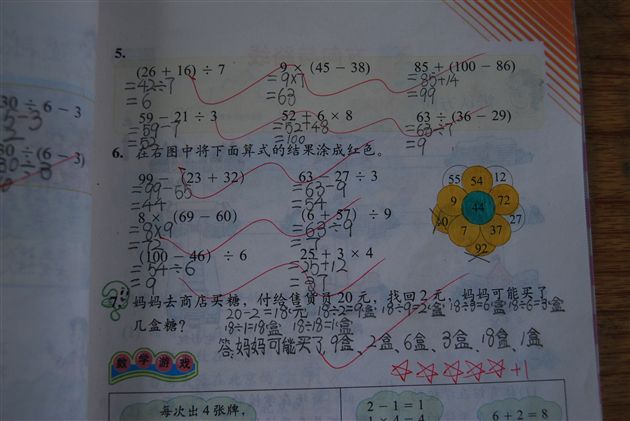 5.
(26 + 16) ÷ 7 9 × (45 − 38) 85 + (100 − 86)
=42÷7 =9×7 =85+14
=6 =63 =99
59 − 21 ÷ 3 52 + 6 × 8 63 ÷ (36 − 29)
=59−7 =52+48 =63÷7
=52 =100 =9
30 ÷ 6 − 3
5−3
÷ (6 − 3)
6. 在右图中将下面算式的结果涂成红色。
99 − (23 + 32) 63 − 27 ÷ 3
=99−55 =63−9
=44 =54
8 × (69 − 60) (6 + 57) ÷ 9
=8×9 =63÷9
=72 =7
(100 − 46) ÷ 6 25 + 3 × 4
=54÷6 =25+12
=9 =37
55 54 12
9 44 72
7 37 27
92
7. 妈妈去商店买糖,付给售货员20元,找回2元,妈妈可能买了
几盒糖?
20−2=18元 18÷2=9盒 18÷9=2盒 18÷3=6盒 18÷6=3盒
18÷1=18盒 18÷18=1盒
答:妈妈可能买了9盒、2盒、6盒、3盒、18盒、1盒
+1
数学游戏
每次出4张牌,
2 − 1 = 1
1 × 4 = 4
6 + 2 = 8